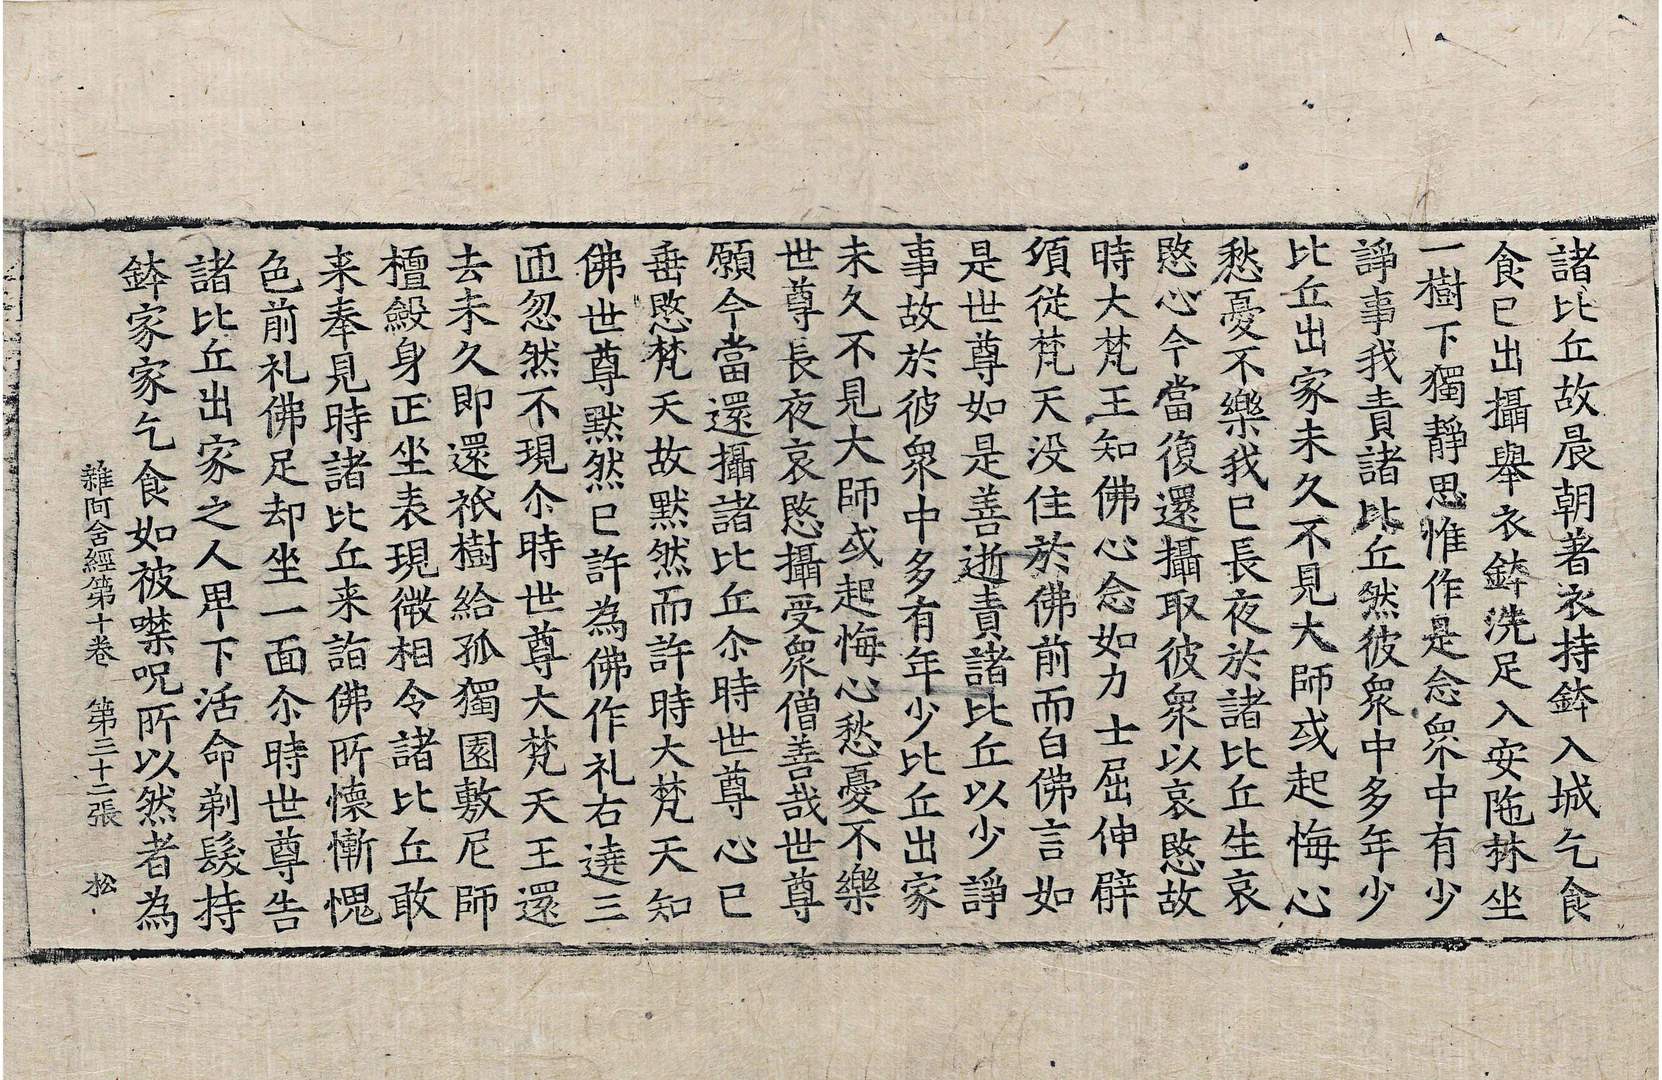 諸比丘故晨朝著衣持鉢入城乞食
食已出攝舉衣鉢洗足入安陁林坐
一樹下獨靜思惟作是念衆中有少
諍事我責諸比丘然彼衆中多年少
比丘出家未久不見大師或起悔心
愁憂不樂我已長夜於諸比丘生哀
愍心今當復還攝取彼衆以哀愍故
時大梵王知佛心念如力士屈伸臂
頃從梵天没住於佛前而白佛言如
是世尊如是善逝責諸比丘以少諍
事故於彼衆中多有年少比丘出家
未久不見大師或起悔心愁憂不樂
世尊長夜哀愍攝受衆僧善哉世尊
願今當還攝諸比丘尒時世尊心已
垂愍梵天故默然而許時大梵天知
佛世尊默然已許為佛作礼右遶三
匝忽然不現尒時世尊大梵天王還
去未久即還祇樹給孤獨園敷尼師
檀斂身正坐表現微相令諸比丘敢
来奉見時諸比丘来詣佛所懷慚愧
色前礼佛足却坐一面尒時世尊告
諸比丘出家之人卑下活命剃髮持
鉢家家乞食如被噤呪所以然者為
雜阿含經第十卷 第三十二張 松